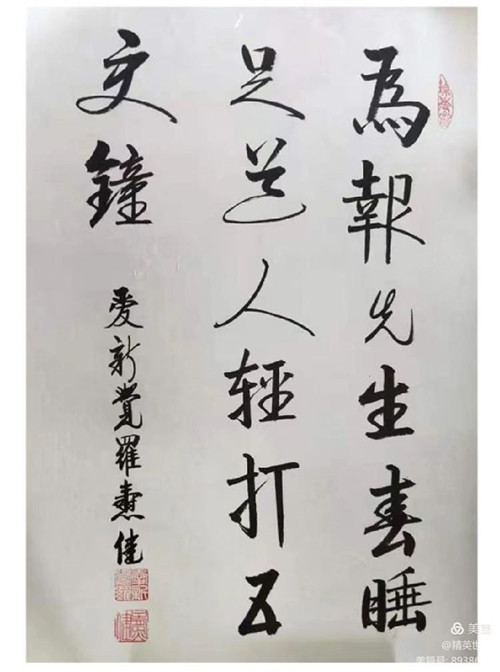 為報先生春睡
足道人輕打五
更鐘
愛新覺羅燾佳
美篇
@精英世
美篇号: 8938